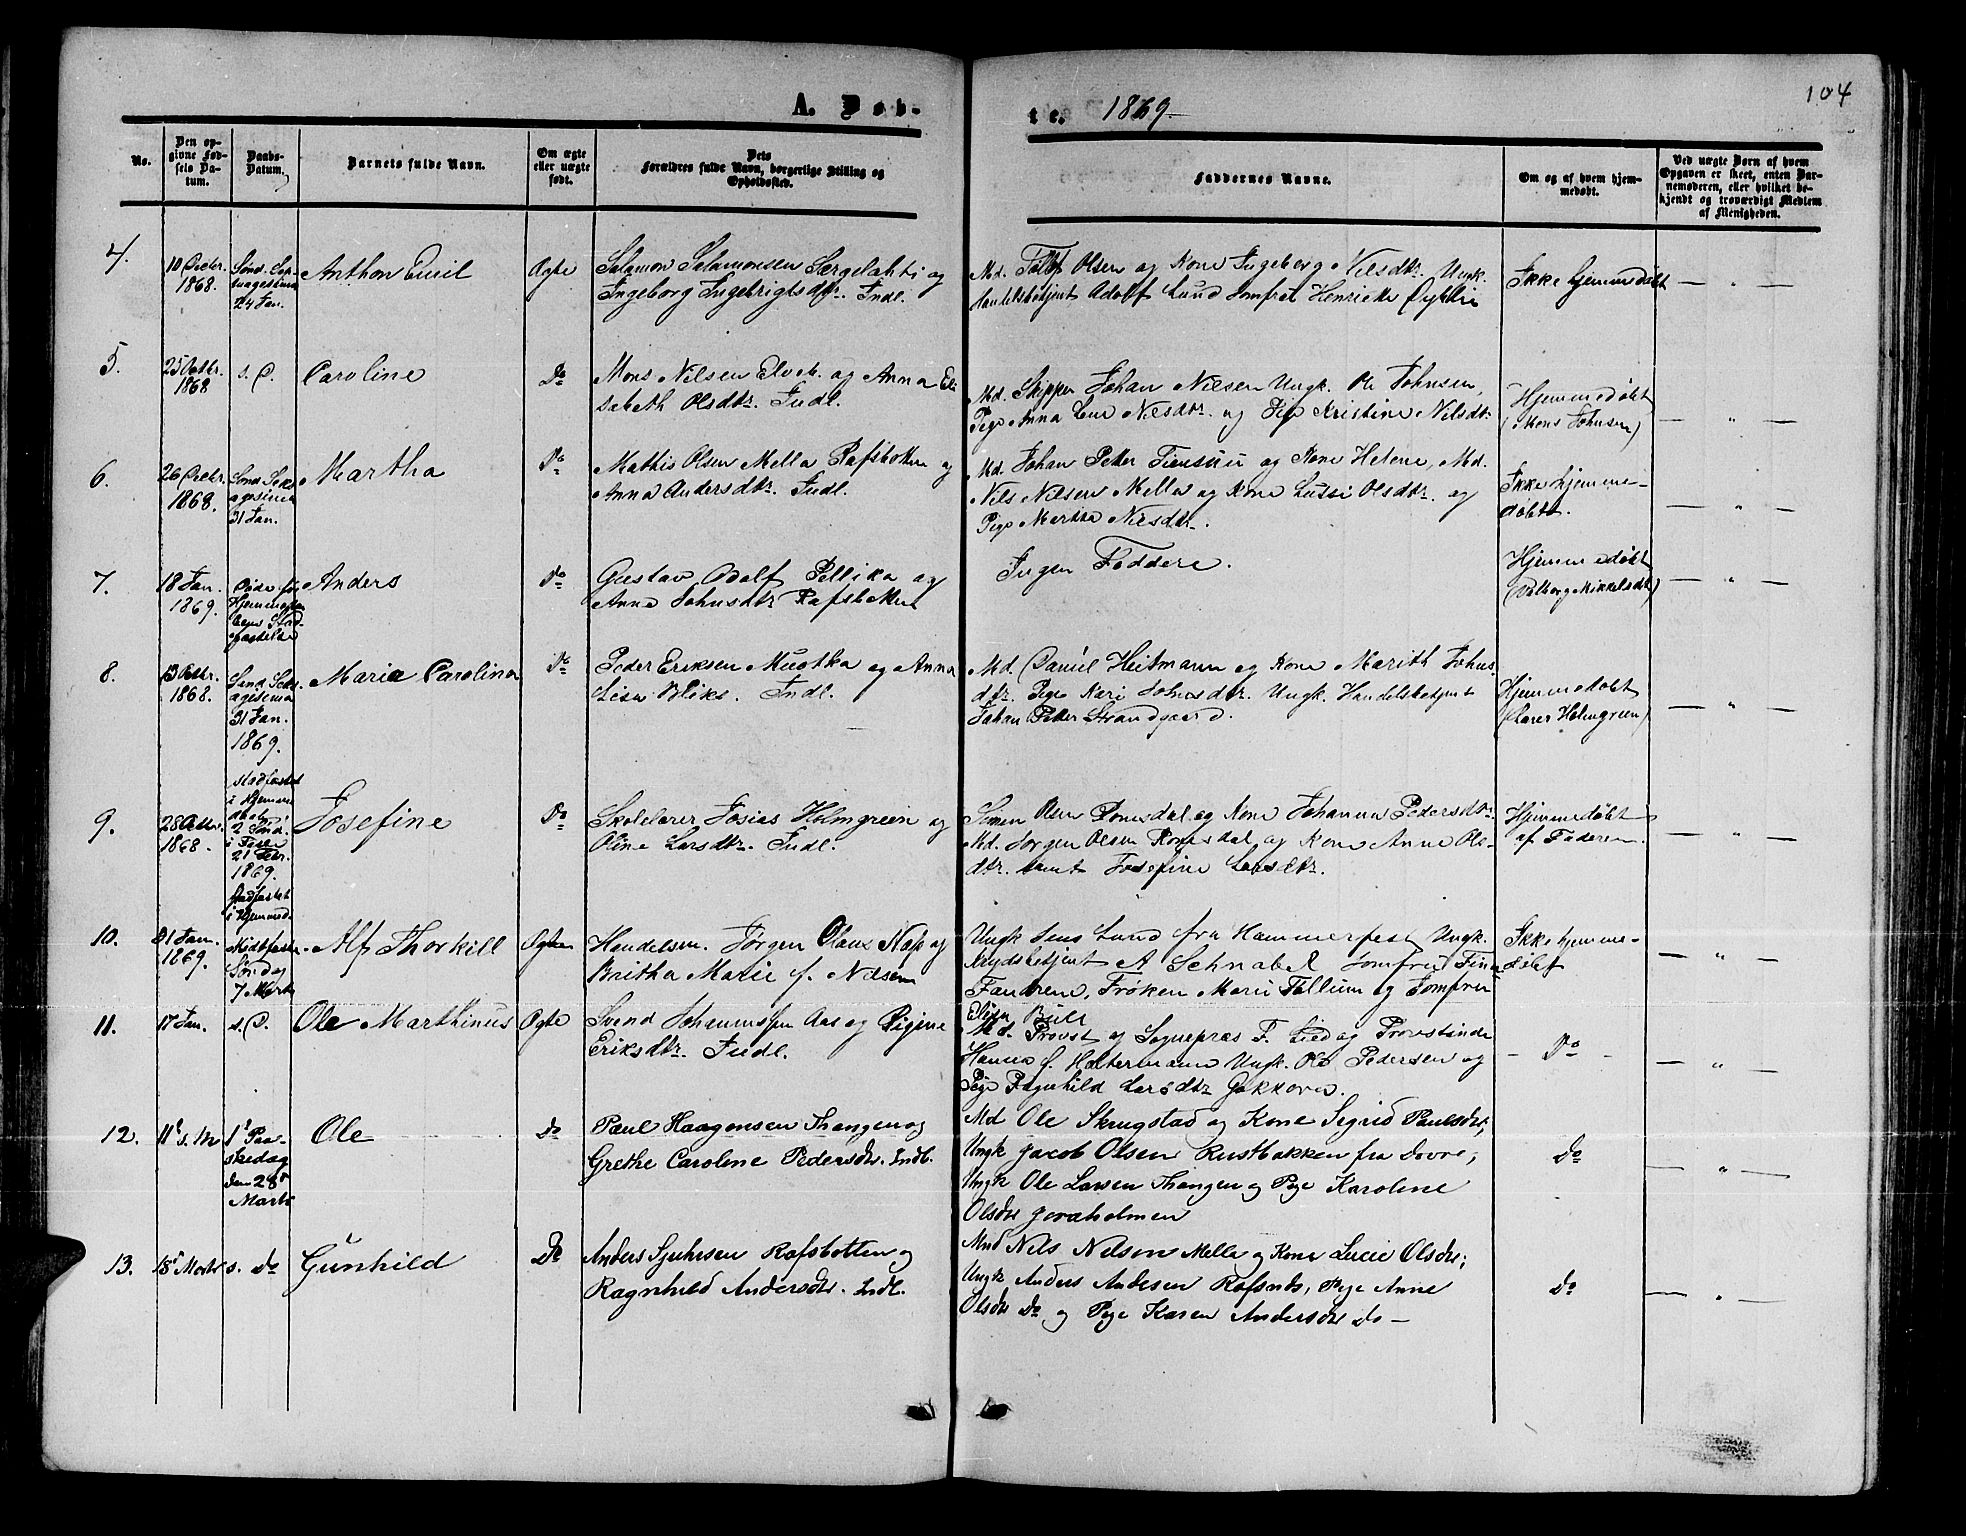 104
A. Døb-
te. 1869.
No.
Den op-
givne Fød-
sels Da-
tum.
Daabs-
Datum.
Barnets fulde Navn.
Om ægte
eller uægte
født.
Dets
Forældres fulde Navn, borgerlige Stilling og
Opholdssted.
Faddernes Navne.
Om og af hvem hjem-
medøbt.
Ved uægte Børn af hvem
Opgaven er skeet, enten Bar-
nemoderen, eller hvilket be-
kjendt og troværdigt Medlem
af Menigheden.
4.
10 Decbr.
1868.
Sønd. Sep-
tuagesima
24 Jan.
Anthon Emil
Ægte
Salamon Salamonsen Særgelahti og
Ingeborg Ingebrigtsdtr. Indl.
Md. Tollef Olsen og Kone Ingeborg Nilsdtr. Ungk.
Handelsbetjent Adolf Lund Jomfru Henrikke
Ikke hjemmedøbt
— " —
5.
25 Octbr.
1868
s. D.
Caroline
Do
Mons Nilsen Elveb. og Anna Eli
sabeth Olsdtr. Indl.
Md. Skipper Johan Nilsen Ungk. Ole Johnsen,
Pige Anna Nilsdtr. og Pige Kristine Nilsdtr.
Hjemmedøbt
(Mons Johnsen)
— " —
6.
26 Decbr.
1868.
Sønd. Sex-
agesima
31 Jan.
Martha
Do
Mathis Olsen Mella Rafsbotten og
Anna Andersdtr. Indl.
Md. Johan Petter Tiensuu og Kone Helene, Md.
Nils Nilsen Mella og Kone Lussi Olsdtr. og
Pige Martha Nilsdtr.
Ikke hjemme-
døbt.
— " —
7.
18 Jan.
1869.
Døde før
Hjemmedaa
bens Stad-
fæstelse
Anders
Do
Gustav Adolf Pellika og
Anna Johnsdtr Rafsbotten
Ingen Faddere.
Hjemmedøbt
(Valborg Mikkelsdtr)
— " —
8.
13 Octbr.
1868.
Sønd. Sex-
agesima
31 Jan.
1869.
Stadfæstet
i Hjemme
daab
Maria Carolina
Do
Peder Eriksen Muotka og Anna
Lisa Bliks. Indl.
Md. Daniel Heitmann og Kone Marith Johns-
dtr. Pige Kari Johnsdtr. Ungk. Handelsbetjent
Johan Petter Strandgaard.
Hjemmedøbt
(Lærer Holmgreen)
— " —
9.
28 Octbr.
1868.
2 Sønd.
i Fasten
21 Febr.
1869.
Stadfæstet
i Hjemmed.
Josefine
Do
Skolelærer Josias Holmgreen og
Oline Larsdtr. Indl.
Simon Olsen Romsdal og Kone Johanna Pedersdtr.
Md. Jørgen Olsen Romsdal og Kone Anne Ols-
dtr. samt Josefine Larsdtr.
Hjemmedøbt
af Faderen.
— " —
10.
31 Jan.
1869.
Midtfaste
Søndag
7 Marts
Alf Thorkill
Ægte
Handelsm. Jørgen Olaus Næss og
Britha Marie f. Nilsen
Ungk. Jens Lund fra Hammerfest, Ungk.
Krydsbetjent A Schnabel Jomfru Fina
Fandrem, Frøken Marie Tellum og Jomfru
Elisa Bull
Ikke hjemme-
døbt
— " —
11.
17 Jan.
s. D.
Ole Marthinus
Ægte
Svend Johannessen Aas og Rigine
Eriksdtr. Indl.
Md. Provst og Sognepræs F. Lied og Provstinde
Hanna f. Haltermann Ungk. Ole Pedersen og
Pige Ragnhild Larsdtr Gakkovre.
- Do -
— " —
12.
11te s. M
1te Paa-
skedag
den 28de
Marts
Ole
Do
Paul Haagensen Thangen og
Grethe Caroline Pedersdtr. Indl.
Md Ole Skrugstad og Kone Sigrid Paulsdtr;
Ungk Jacob Olsen Rustbakken fra Dovre;
Ungk Ole Larsen Thangen og Pige Karoline
Olsdtr Joraholmen
Do
— " —
13.
15de Marts
s. Do
Gunhild
Do
Anders Sjursen Rafsbotten og
Ragnhild Andersdtr. Indl.
Md Nils Nilsen Mella og Kone Lucie Olsdtr;
Ungk Anders Andersen Rafsnds, Pige Anne
Olsdtr Do og Pige Karen Andersdtr Do —
Do
— " —